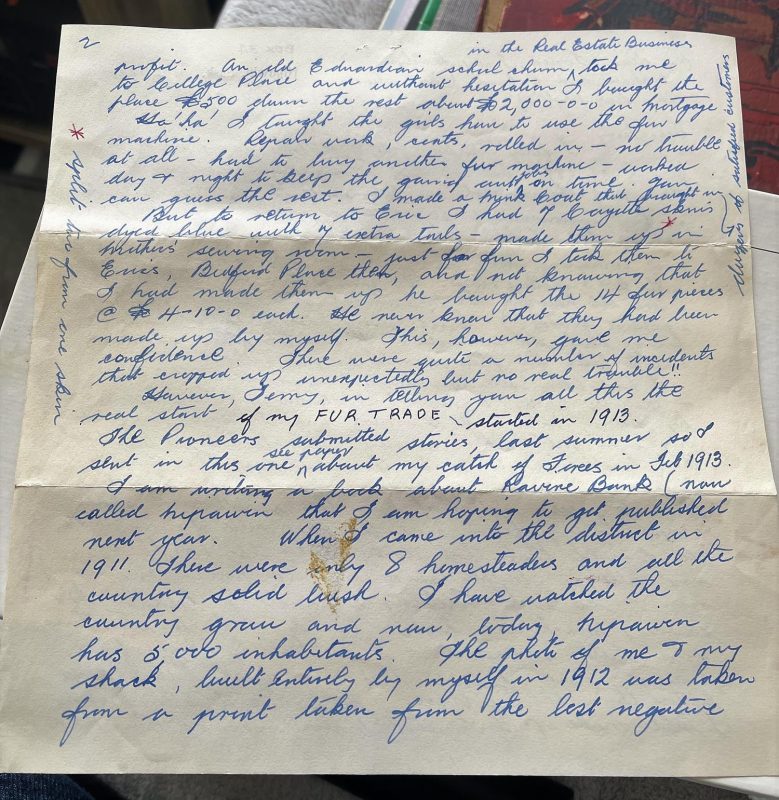 2
in the Real Estate Business
profit. An old Edwardian school chum ^ took me
to College Place and without hesitation I bought the
place $500 down the rest about $2,000-0-0 in mortgage
Ha'ha' I taught the girls how to use the fur
machine. Repair work, coats, rolled in – no trouble
at all – had to buy another fur machine – worked
day & night to keep the going out jobs on time. You
can guess the rest. I made a Mink Coat that brought in
dozens of satisfied customers
But to return to Eric I had 7 Coyotte skins *
dyed blue with 7 extra tails – made them up in
mothers' sewing room – just for fun I took them to
Erics, Bedford Place then, and not knowing that
I had made them up he bought the 14 fur pieces
@ $ 4-10-0 each. He never knew that they had been
made up by myself. This, however, gave me
confidence. There were quite a number of incidents
that cropped up unexpectedly but no real trouble!!
However, Terry, in telling you all this the
real start of my FUR TRADE started in 1913.
The Pioneers submitted stories, last summer so I
sent in this one see paper ^ about my catch of Foxes in Feb 1913.
I am writing a book about Ravine Bank (now
called Nipawin that I am hoping to get published
next year. When I came into the district in
1911. There were only 8 homesteaders and all the
country solid bush. I have watched the
country grow and now, today, Nipawin
has 5,000 inhabitants. The photo of me & my
shack, built entirely by myself in 1912 was taken
from a print taken from the lost negative
* split two from one skin